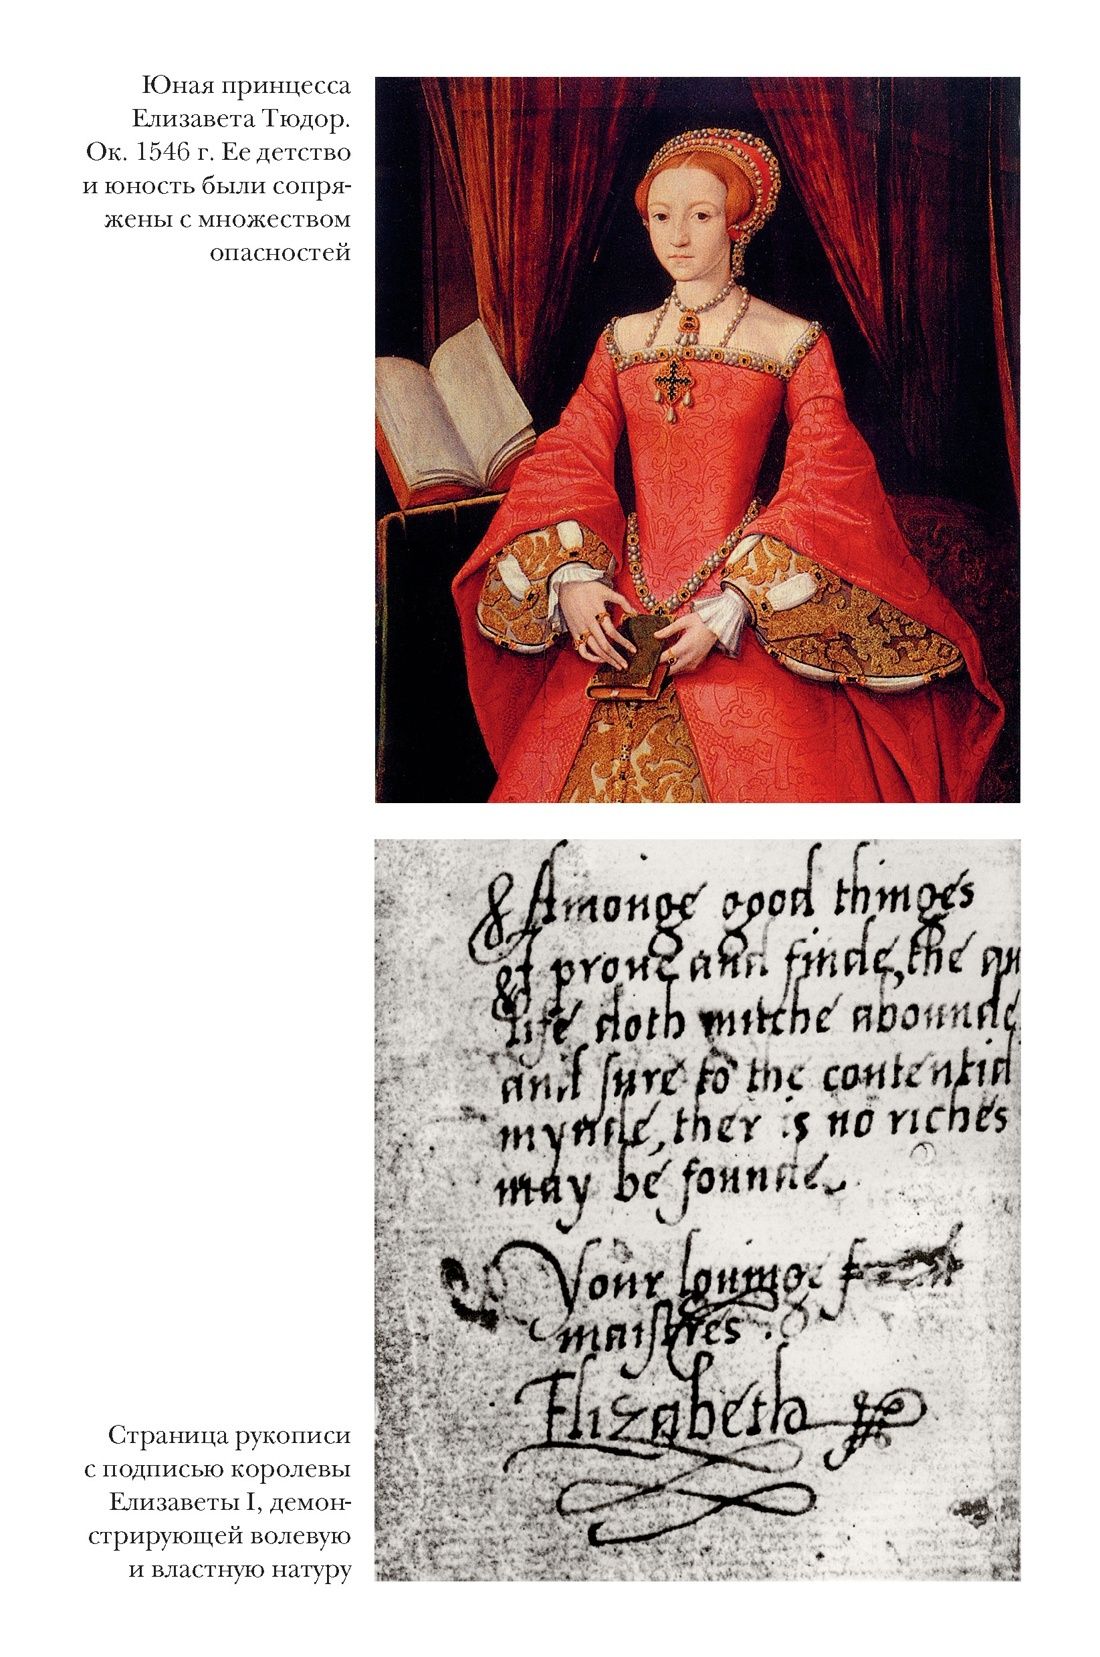 Юная принцесса
Елизавета Тюдор.
Ок. 1546 г. Ее детство
и юность были сопря-
жены с множеством
опасностей
& Amonge good thinges
I prove and finde, the qu
life doth mutche abounde,
and sure to the contentid
mynde, ther is no riches
may be founde.
Your lovinge
maistres.
Elizabeth
Страница рукописи
с подписью королевы
Елизаветы I, демон-
стрирующей волевую
и властную натуру